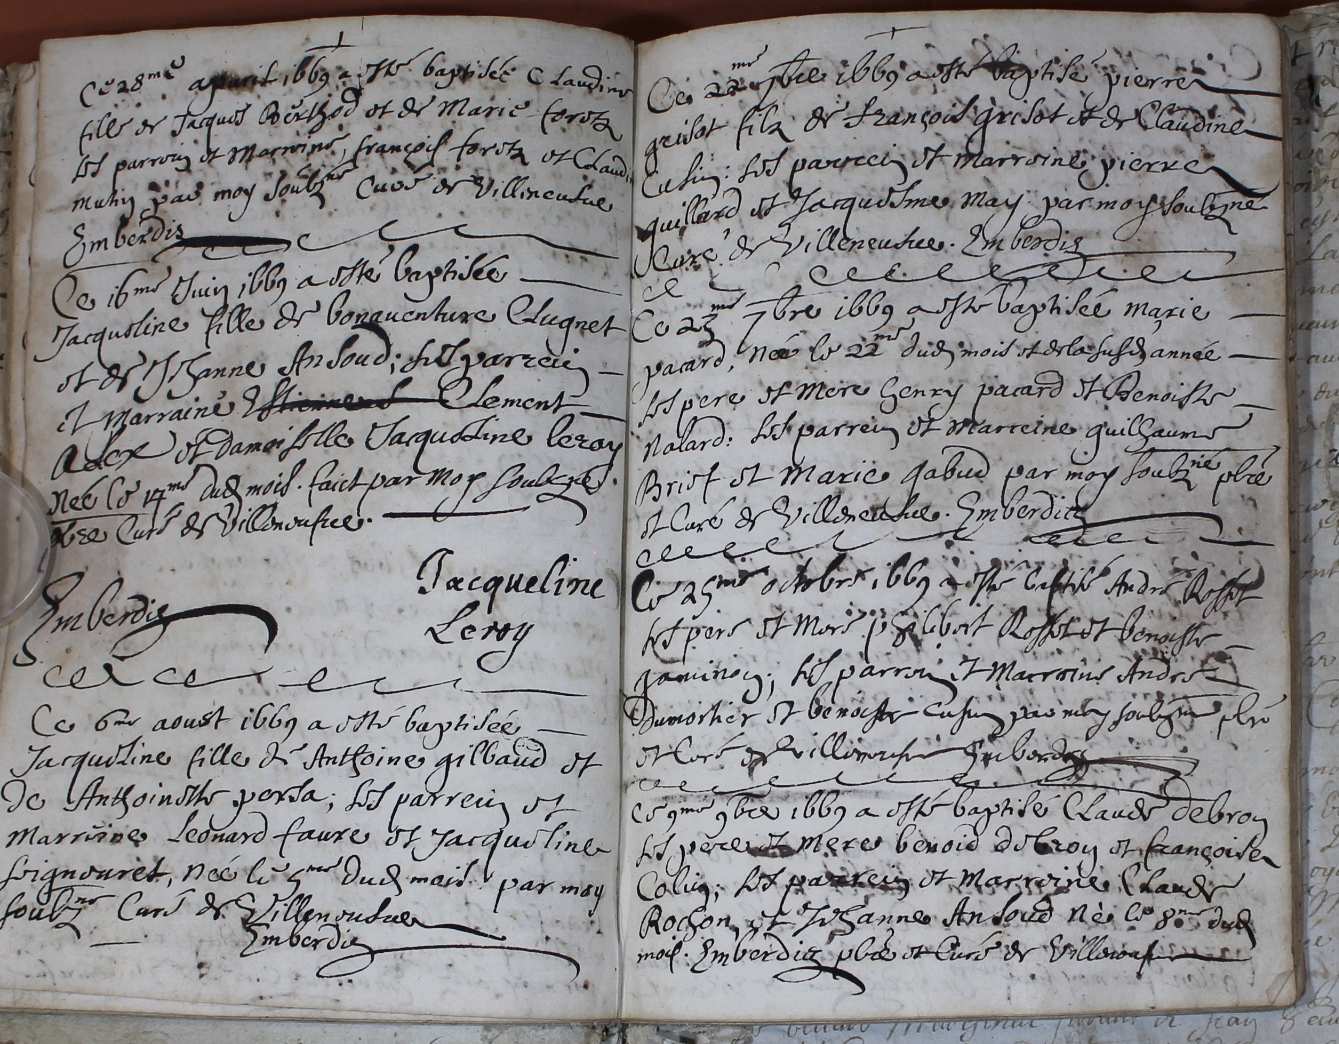 Ce 28me apvril 1669 a esté baptisée Claudine
fille de Jacques Berthod et de Marie foretz
ses parrein et Marreine, françois foretz et Claudi
muhin par moy soubzne Curé de Villeneufve
Emberdis
Ce 16me Juin 1669 a esté baptisée
Jacqueline fille de bonaventure Clugnet
et de Jehanne Ansoud; ses parrein
et Marraine Clement
Alex et damoiselle Jacqueline leroy
Née le 14me dud mois. faict par Moy soubzné
pbre Curé de Villeneufve.
Jacqueline
Emberdis
Leroy
Ce 6me aoust 1669 a esté baptisée
Jacqueline fille de Anthoine gilbaud et
de Anthoinette persa; ses parrein et
Marreine Leonard faure et Jacqueline
seignouret, Née le 5me dud mois par moy
soubzne Curé de Villeneufve
Emberdis
Ce 22me 7bre 1669 a esté baptisé pierre
grisot filz de françois grisot et de Claudine
Cusin: ses parrein et marreine pierre
guillard et Jacquesme May par moy soubzné
Curé de Villeneufve. Emberdis
Ce 23me 7bre 1669 a esté baptisée marie
pacard, Née le 22me dud mois et de la susd année
ses pere et mere henry pacard et Benoiste
Nalard: ses parrein et Marreine guilhaume
Brief et Marie gabud par moy soubzné pbre
et Curé de Villeneufve. Emberdis
Ce 25me octobre 1669 a esté baptisé André Rosset
ses pere et Mere philibert Rosset et benoiste
gauinon; ses parrein et Marreine André
dumortier et benoiste cusin par moy soubzne pbre
et Curé de Villeneufve Emberdis
Ce 9me 9bre 1669 a esté baptisé Claude debroy
ses pere et Mere benoid debroy et françoise
Colin; ses parrein et Marreine Claude
Rochon, et Jehanne Ansoud Né le 8me dud
mois. Emberdis pbre et Curé de Villeneuf